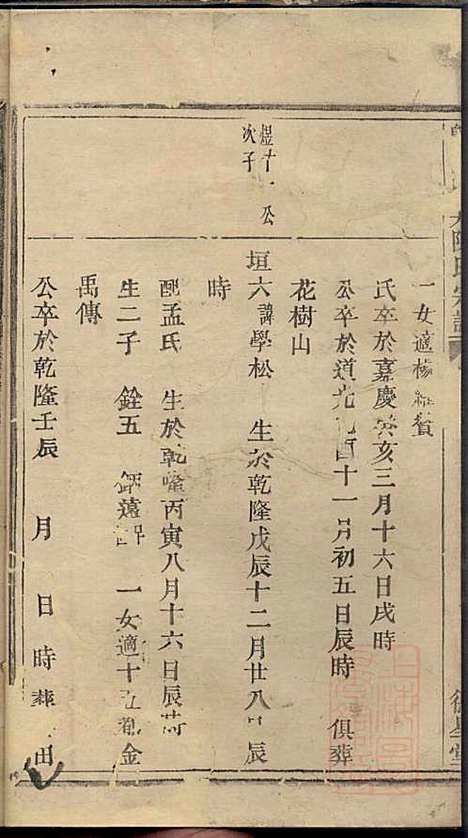 一女適楊
氏卒於嘉慶癸亥三月十六日戌時
公卒於道光十一月初五日辰時 俱葬
花樹山
煜十一公
次子
垣六諱學松 生於乾隆戊辰十二月廿八日辰
時
配孟氏 生於乾隆丙寅八月十六日辰時
生二子 銓五 一女適十五都金
禹傳
公卒於乾隆壬辰 月 日時葬 田